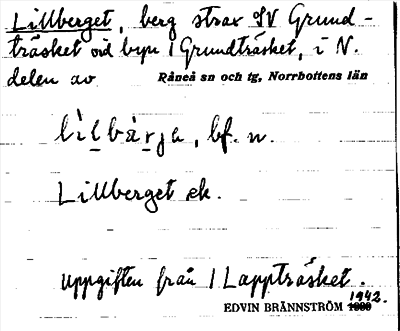 Lillberget, berg strax SV Grund-
träsket vid byn 1 Grundträsket, i N.
delen av Råneå sn och tg, Norrbottens län
lìlbàrja, bf. n.
Lillberget ek.
Uppgiften från 1 Lappträsket.
EDVIN BRÄNNSTRÖM 1942.